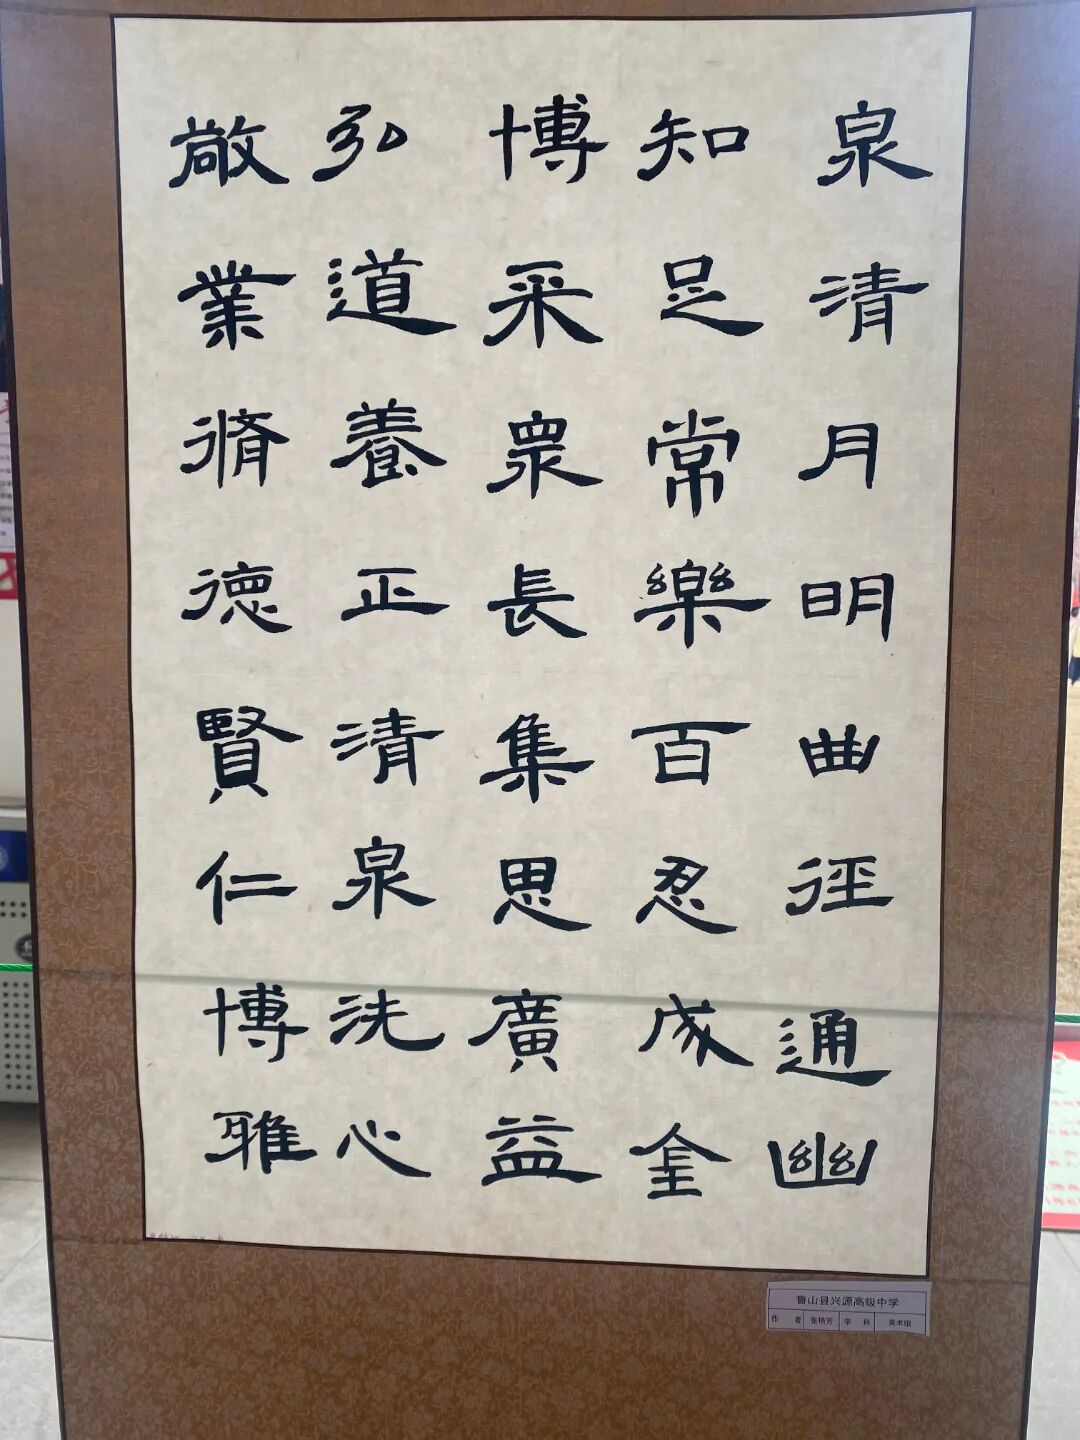 泉清月明曲徑通幽
知足常樂百忍成金
博采眾長集思廣益
弘道養正清泉洗心
敬業脩德賢仁博雅
鲁山县兴源高级中学
作者 张艳芳 学科 美术组